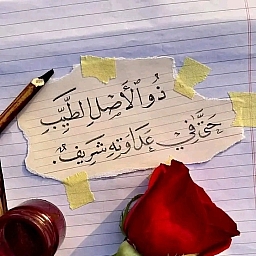 ذُو ٱلْأَصْلِ الطَّيِّبِ
حَتَّى فِي عَدَاوَتِهِ شَرِيفٌ.